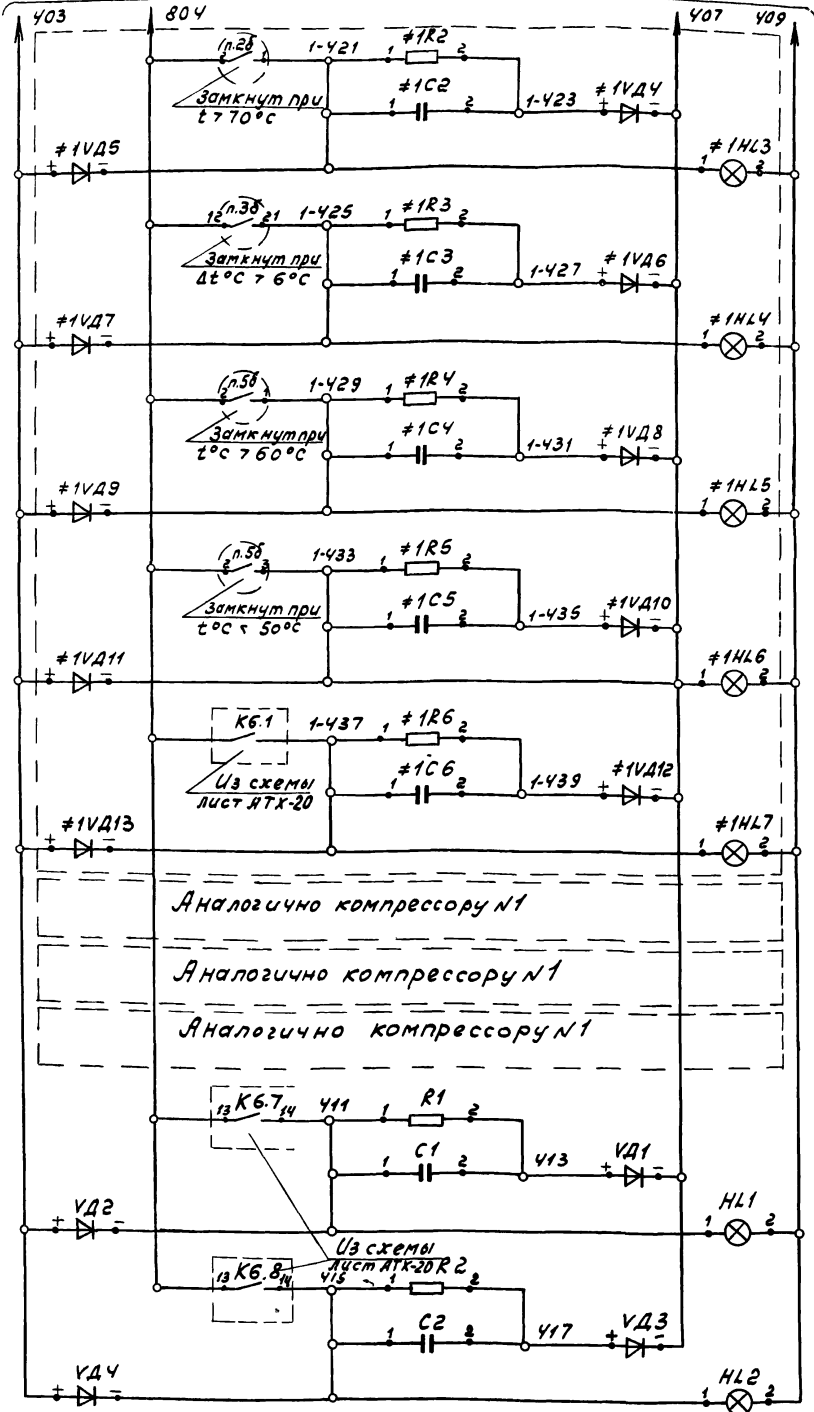 403 804 407 409
(п.2б) 1-421 ≠1R2
2 1 1 2
Замкнут при
t > 70°C
≠1C2 1-423 ≠1VД4
1 2 + -
≠1VД5 ≠1HL3
+ - 1 2
(п.3б) 1-425 ≠1R3
12 21 1 2
Замкнут при
Δt°C > 6°C
≠1C3 1-427 ≠1VД6
1 2 + -
≠1VД7 ≠1HL4
+ - 1 2
(п.5б) 1-429 ≠1R4
2 1 1 2
Замкнут при
t°C > 60°C
≠1C4 1-431 ≠1VД8
1 2 + -
≠1VД9 ≠1HL5
+ - 1 2
(п.5б) 1-433 ≠1R5
2 3 1 2
Замкнут при
t°C < 50°C
≠1C5 1-435 ≠1VД10
1 2 + -
≠1VД11 ≠1HL6
+ - 1 2
К6.1 1-437 ≠1R6
1 2
Из схемы
лист АТХ-20
≠1C6 1-439 ≠1VД12
1 2 + -
≠1VД13 ≠1HL7
+ - 1 2
Аналогично компрессору N1
Аналогично компрессору N1
Аналогично компрессору N1
13 К6.7 14 411 1 R1 2
1 C1 2 413 + VД1 -
VД2 HL1
+ - 1 2
Из схемы
лист АТХ-20
13 К6.8 14 415 1 R2 2
1 C2 2 417 + VД3 -
VД4 HL2
+ - 1 2